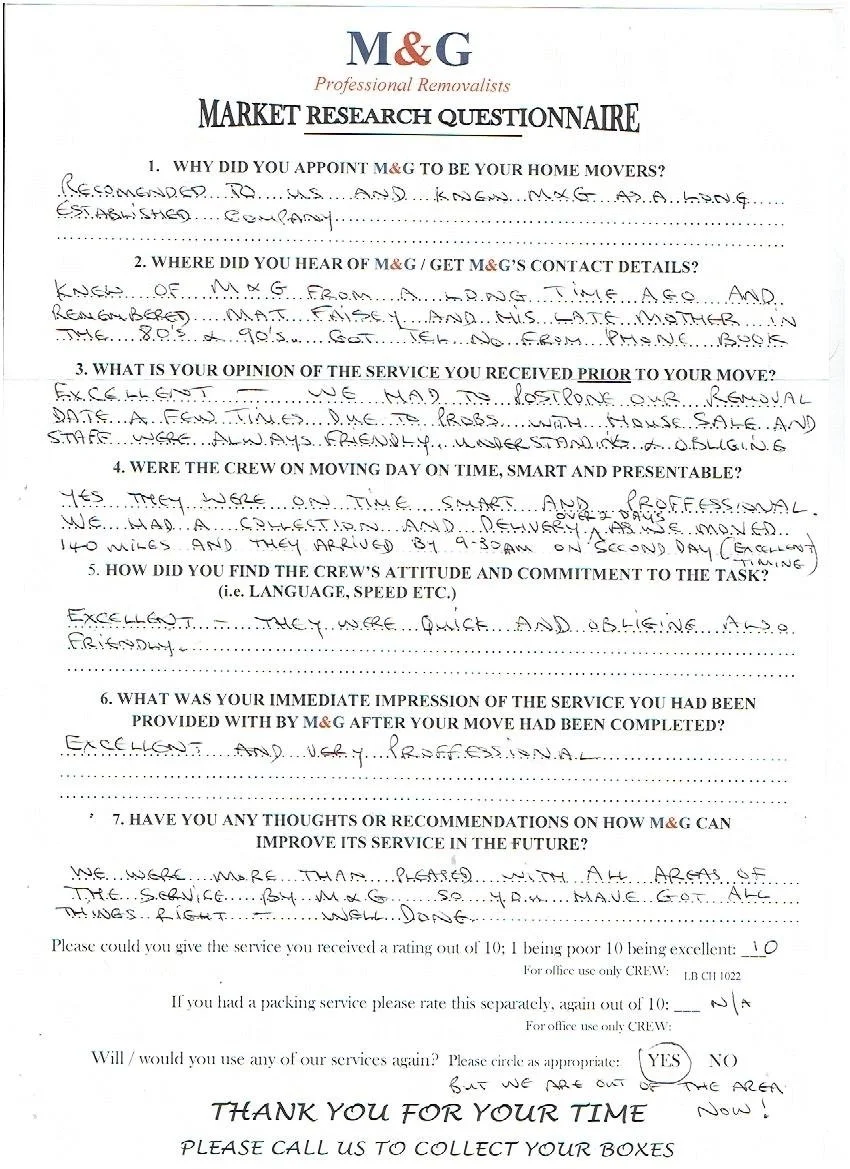 M&G
Professional Removalists
MARKET RESEARCH QUESTIONNAIRE
1. WHY DID YOU APPOINT M&G TO BE YOUR HOME MOVERS?
RECOMENDED TO US AND KNEW M&G AS A LONG
ESTABLISHED COMPANY
2. WHERE DID YOU HEAR OF M&G / GET M&G'S CONTACT DETAILS?
KNEW OF M&G FROM A LONG TIME AGO AND
REMEMBERED MAT FAISEY AND HIS LATE MOTHER IN
THE 80'S & 90'S. GOT TEL NO FROM PHONE BOOK
3. WHAT IS YOUR OPINION OF THE SERVICE YOU RECEIVED PRIOR TO YOUR MOVE?
EXCELLENT – WE HAD TO POSTPONE OUR REMOVAL
DATE A FEW TIMES DUE TO PROBS WITH HOUSE SALE AND
STAFF WERE ALWAYS FRIENDLY, UNDERSTANDING & OBLIGING
4. WERE THE CREW ON MOVING DAY ON TIME, SMART AND PRESENTABLE?
YES THEY WERE ON TIME SMART AND PROFFESSIONAL.
WE HAD A COLLECTION AND DELIVERY OVER 2 DAYS AS WE MOVED
140 MILES AND THEY ARRIVED BY 9-30AM ON SECOND DAY (EXCELLENT TIMING)
5. HOW DID YOU FIND THE CREW'S ATTITUDE AND COMMITMENT TO THE TASK?
(i.e. LANGUAGE, SPEED ETC.)
EXCELLENT – THEY WERE QUICK AND OBLIGING ALSO
FRIENDLY.
6. WHAT WAS YOUR IMMEDIATE IMPRESSION OF THE SERVICE YOU HAD BEEN
PROVIDED WITH BY M&G AFTER YOUR MOVE HAD BEEN COMPLETED?
EXCELLENT AND VERY PROFFESSIONAL
7. HAVE YOU ANY THOUGHTS OR RECOMMENDATIONS ON HOW M&G CAN
IMPROVE ITS SERVICE IN THE FUTURE?
WE WERE MORE THAN PLEASED WITH ALL AREAS OF
THE SERVICE BY M&G SO YOU HAVE GOT ALL
THINGS RIGHT – WELL DONE
Please could you give the service you received a rating out of 10; 1 being poor 10 being excellent: 10
For office use only CREW: LB CH 1022
If you had a packing service please rate this separately, again out of 10: ___ N/A
For office use only CREW:
Will / would you use any of our services again? Please circle as appropriate: YES NO
BUT WE ARE OUT OF THE AREA
NOW!
THANK YOU FOR YOUR TIME
PLEASE CALL US TO COLLECT YOUR BOXES